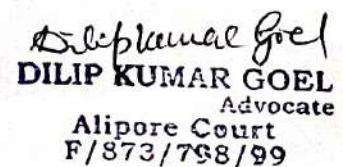 Dilip kumar Goel
DILIP KUMAR GOEL
Advocate
Alipore Court
F/873/798/99